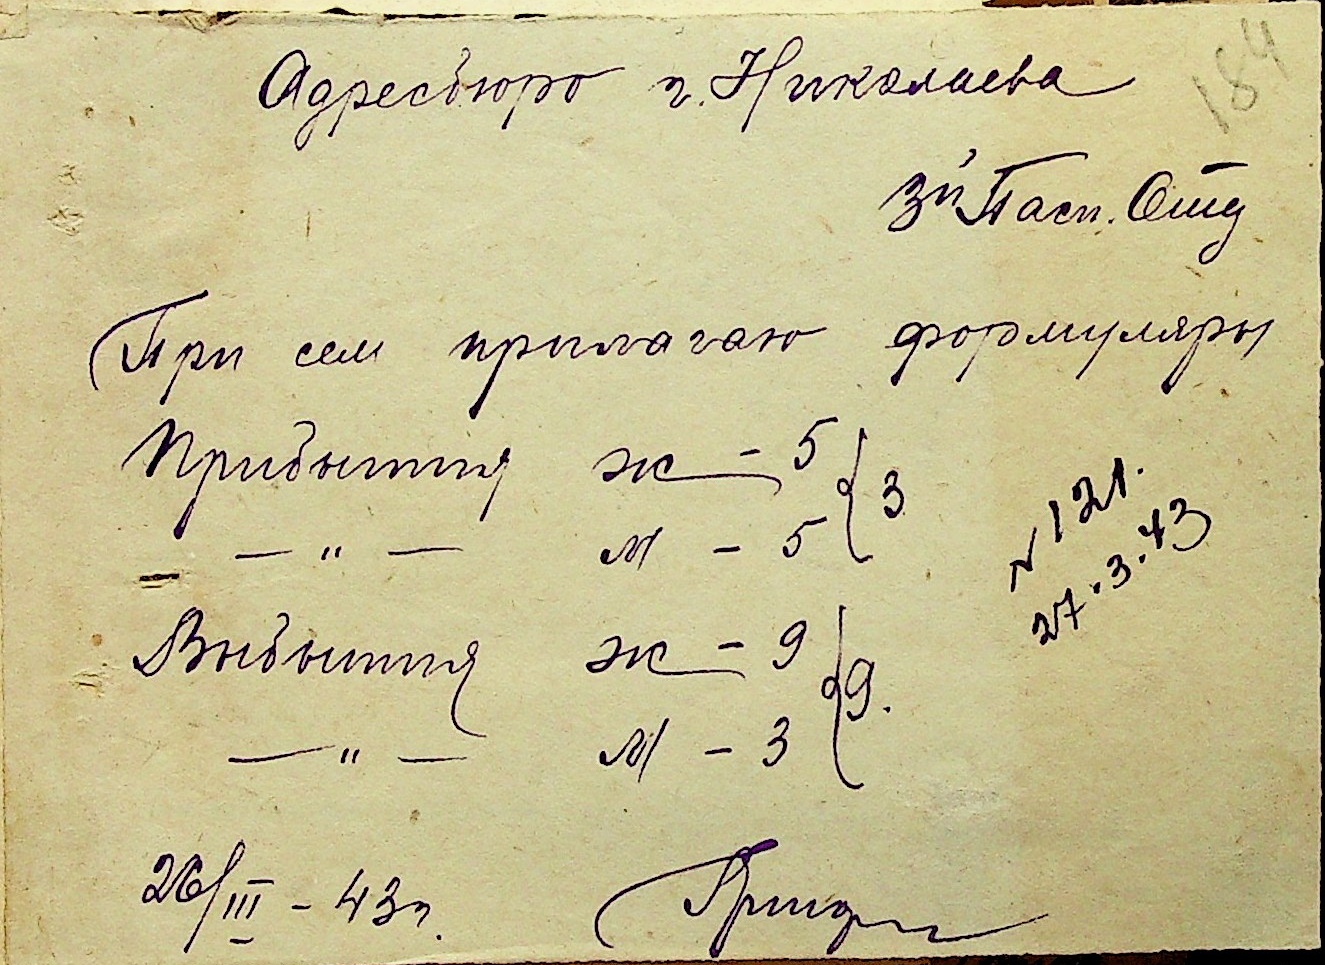 184
Адресбюро г. Николаева
3й Пасп. Отд
При сем прилагаю формуляры
Прибытия ж - 5 } 3
— " — м - 5
№ 121.
27.3.43
Выбытия ж - 9 } 9.
— " — м - 3
26/III - 43 г.